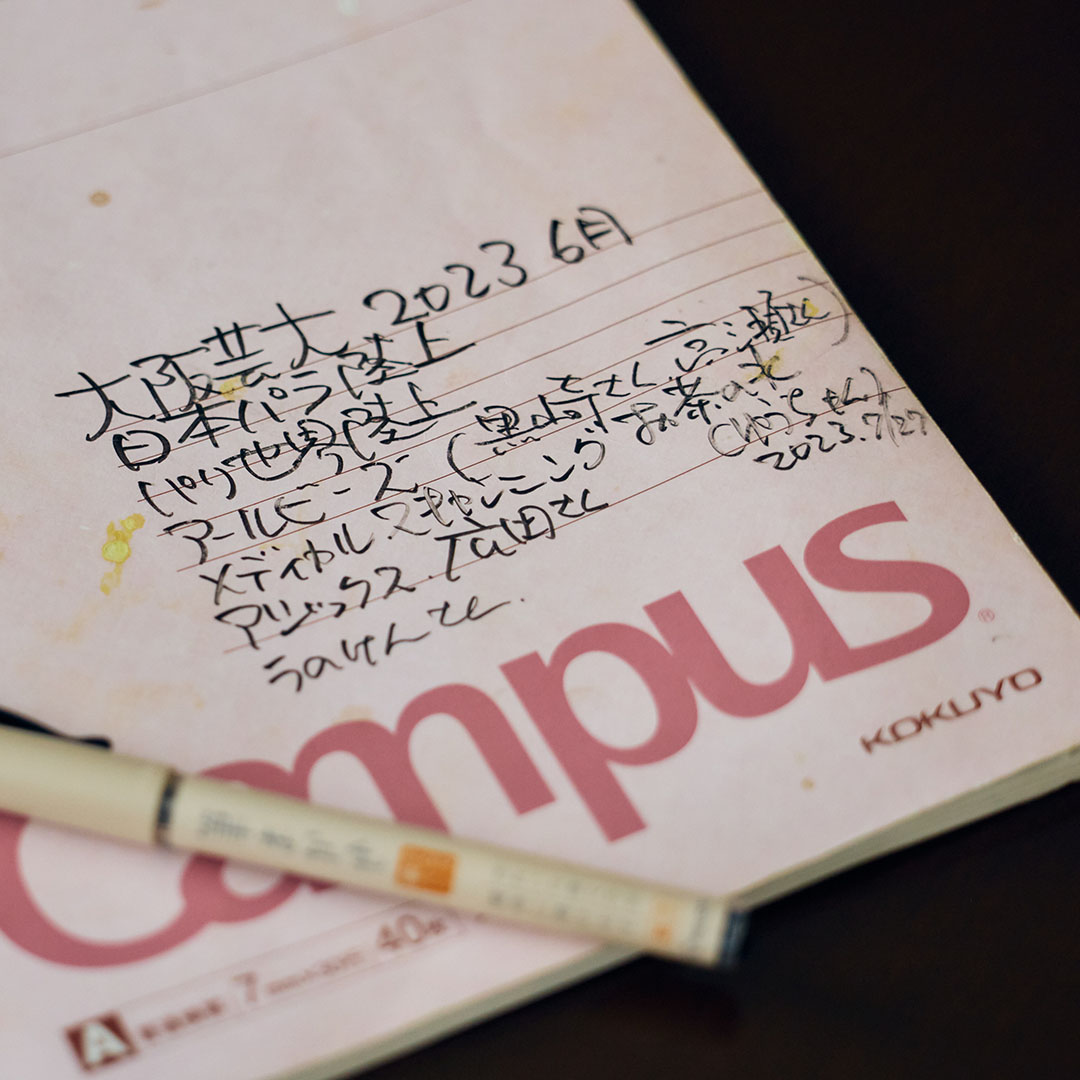 大阪芸大 2023 6月
日本パラ陸上
パリ世界陸上
アールビーズ (黒崎さん 高瀬さん)
メディカル.スキャニング お茶の水
2023.7/27
アシックス.広田さん
うのけんさん.
Campus®
KOKUYO
A 7 40